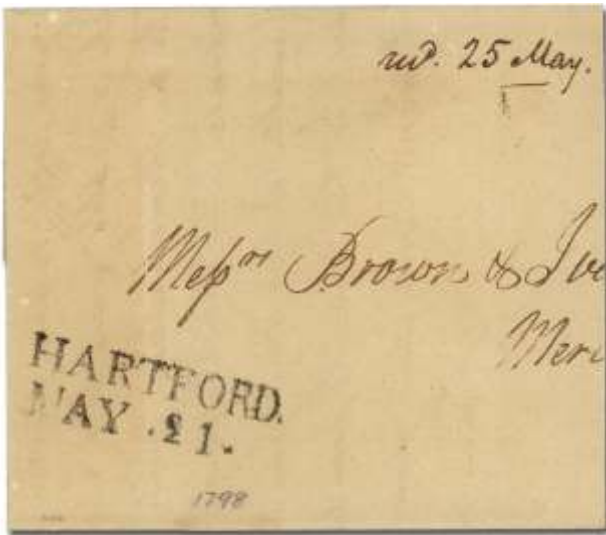 recd. 25 May.
Messrs Brown & Ive
Merc
HARTFORD.
MAY .21.
1798